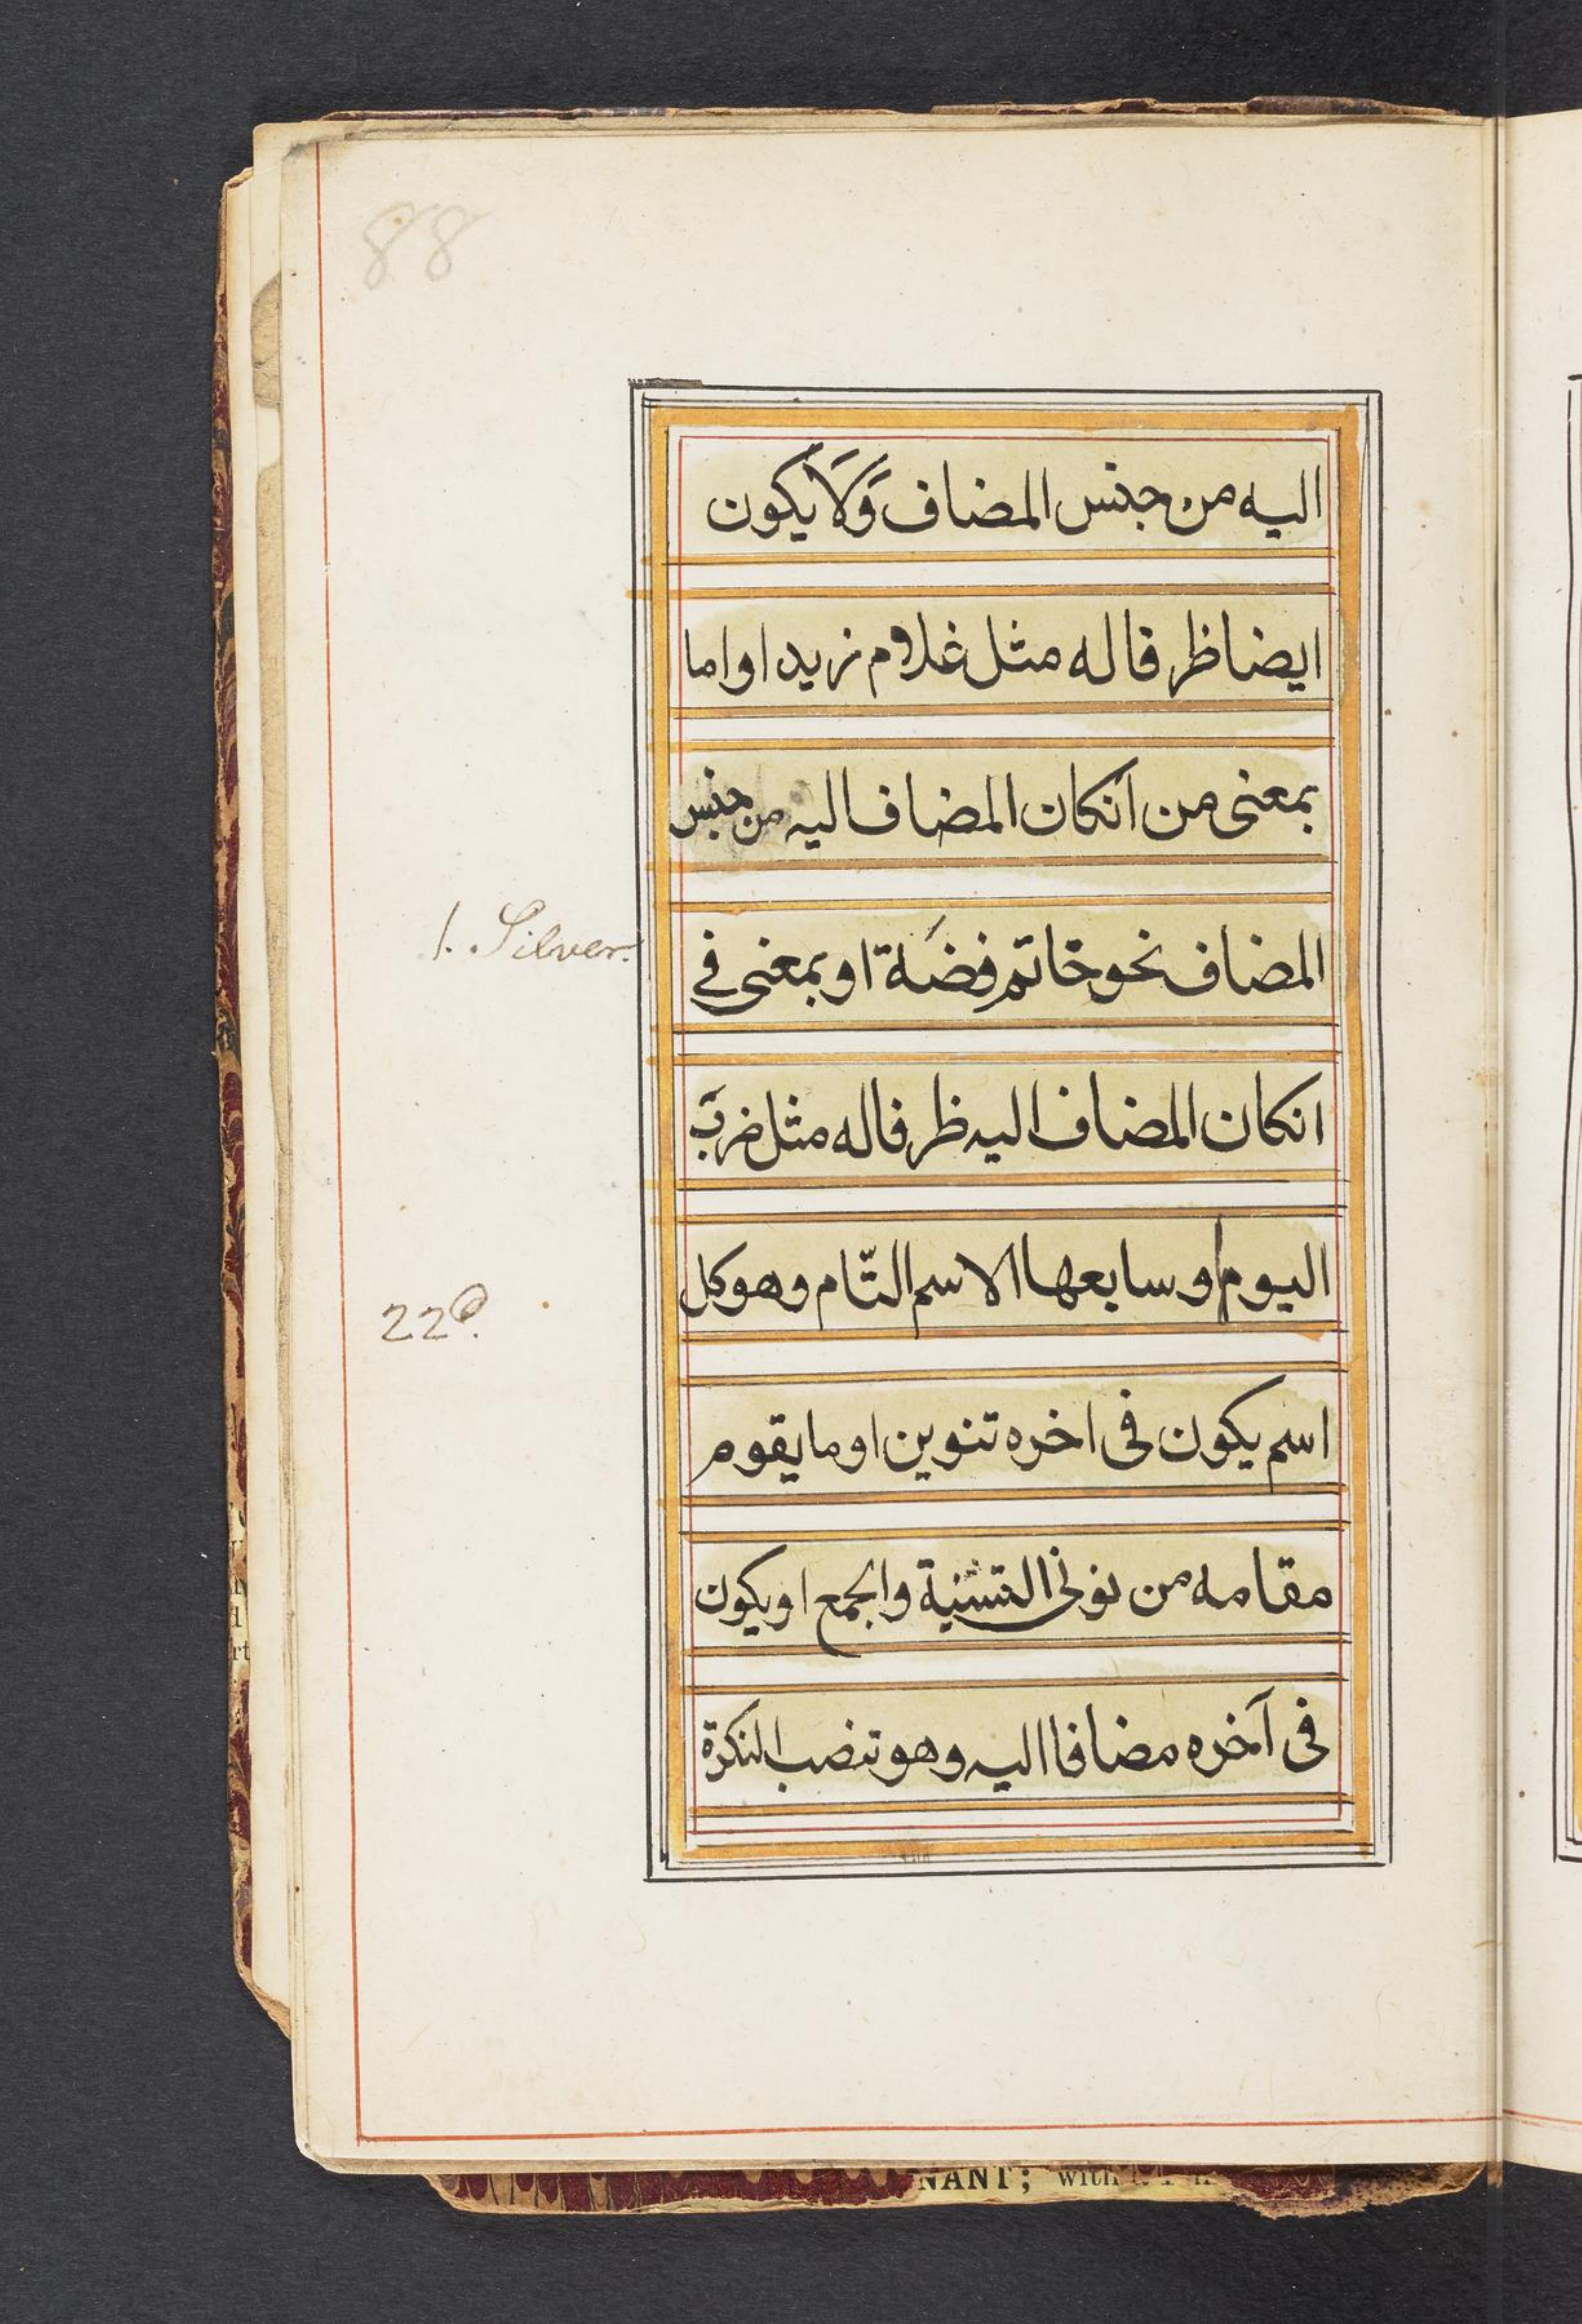 88
اليه من جنس المضاف وَّلَا يكون
ايضا ظرفا له مثل غلام زيد او اما
بمعنى من انكان المضاف اليه من جنس
المضاف نحو خاتم فضَة او بمعنى فے
1. Silver.
انكان المضاف اليه ظرفا له مثل ضربَ
اليوم او سابعها الاسم التّام وهو كل
اسم يكون فى اخره تنوين او ما يقوم
مقامه من نونى التثنية والجمع او يكون
فى آخره مضافا اليه وهو تنصب النكرة
NANT; with